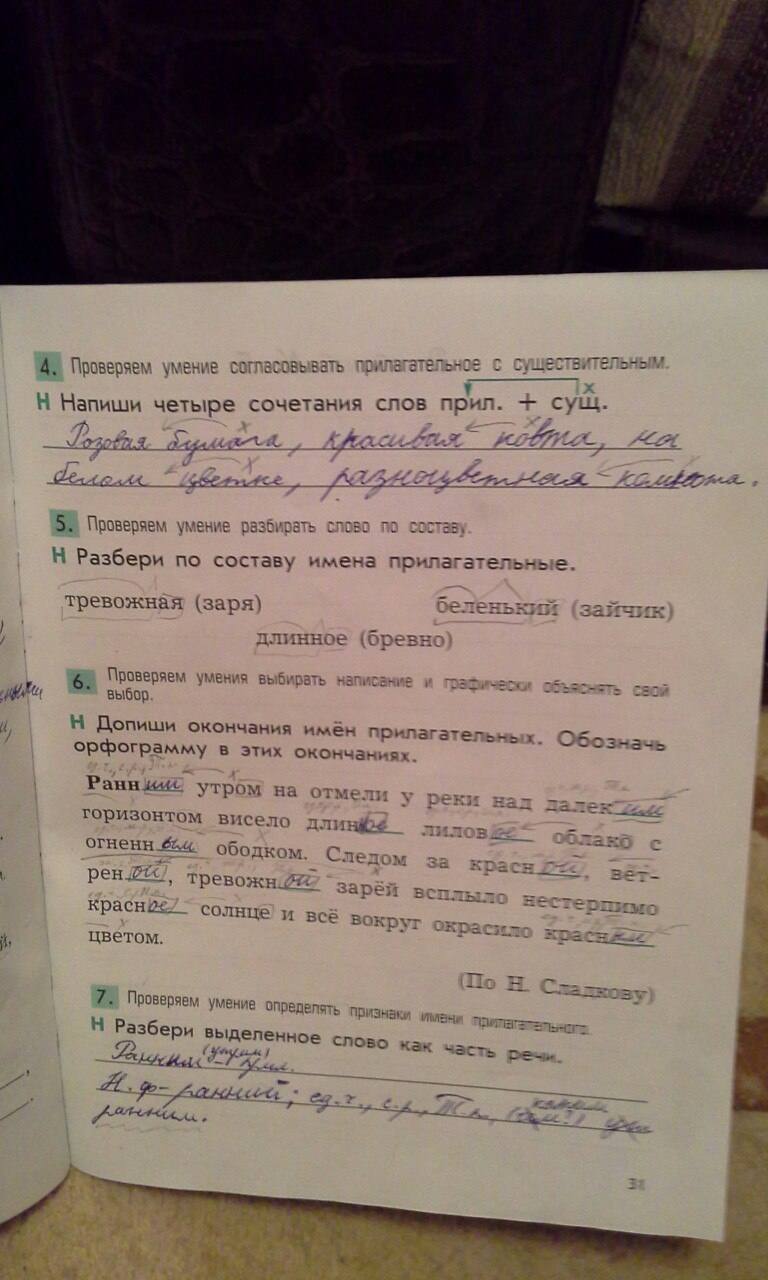 4. Проверяем умение согласовывать прилагательное с существительным.
Н Напиши четыре сочетания слов прил. + сущ.
х
Розовая бумага, красивая ковта, на
белом цветке, разноцветная комната.
5. Проверяем умение разбирать слово по составу.
Н Разбери по составу имена прилагательные.
тревожная (заря) беленький (зайчик)
длинное (бревно)
6. Проверяем умения выбирать написание и графически объяснять свой
выбор.
Н Допиши окончания имён прилагательных. Обозначь
орфограмму в этих окончаниях.
Ранним утром на отмели у реки над далеким
горизонтом висело длинное лиловое облако с
огненным ободком. Следом за красной, вет-
реной, тревожной зарёй всплыло нестерпимо
красное солнце и всё вокруг окрасило красным
цветом.
(По Н. Сладкову)
7. Проверяем умение определять признаки имени прилагательного.
Н Разбери выделенное слово как часть речи.
(утром)
Ранним – прил.
каким
Н.ф – ранний; ед.ч., с.р., Т.п.,
ранним.
31